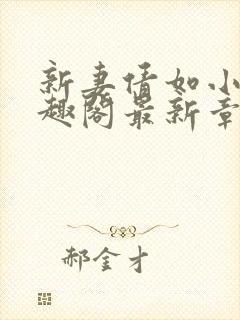 新妻情如小
趣阁最新章
郝金才